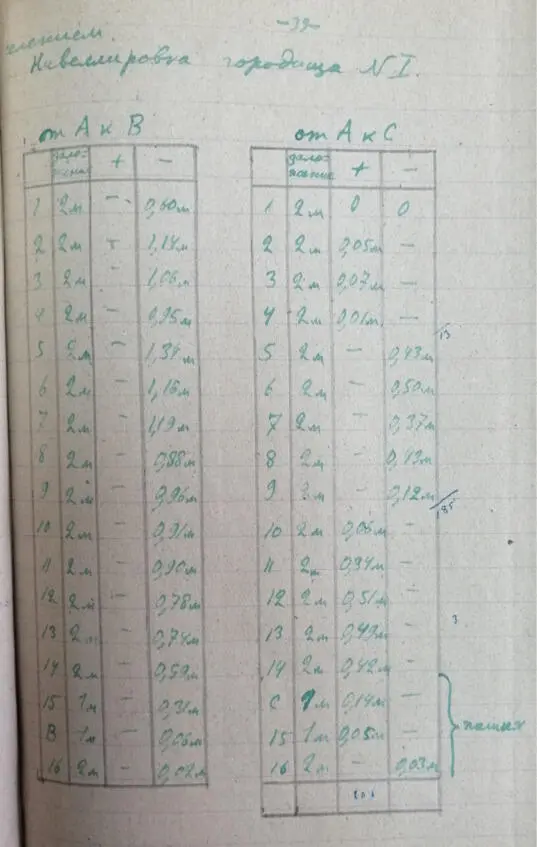 -39-
лением.
Нивеллировка городища №I.
от А к В
зало-жение + —
1 2м — 0,60м
2 2м — 1,14м
3 2м — 1,06м
4 2м — 0,95м
5 2м — 1,34м
6 2м — 1,16м
7 2м — 1,19м
8 2м — 0,88м
9 2м — 0,96м
10 2м — 0,91м
11 2м — 0,90м
12 2м — 0,78м
13 2м — 0,74м
14 2м — 0,59м
15 1м — 0,31м
В 1м — 0,06м
16 2м — 0,02м
от А к С
зало-жение + —
1 2м 0 0
2 2м 0,05м —
3 2м 0,07м —
4 2м 0,01м —
13
5 2м — 0,43м
6 2м — 0,50м
7 2м — 0,37м
8 2м — 0,43м
9 2м — 0,12м
185
10 2м 0,06м —
11 2м 0,34м —
12 2м 0,51м —
13 2м 0,49м —
3
14 2м 0,42м —
С 1м 0,14м —
15 1м 0,05м —
16 2м — 0,03м
пашня